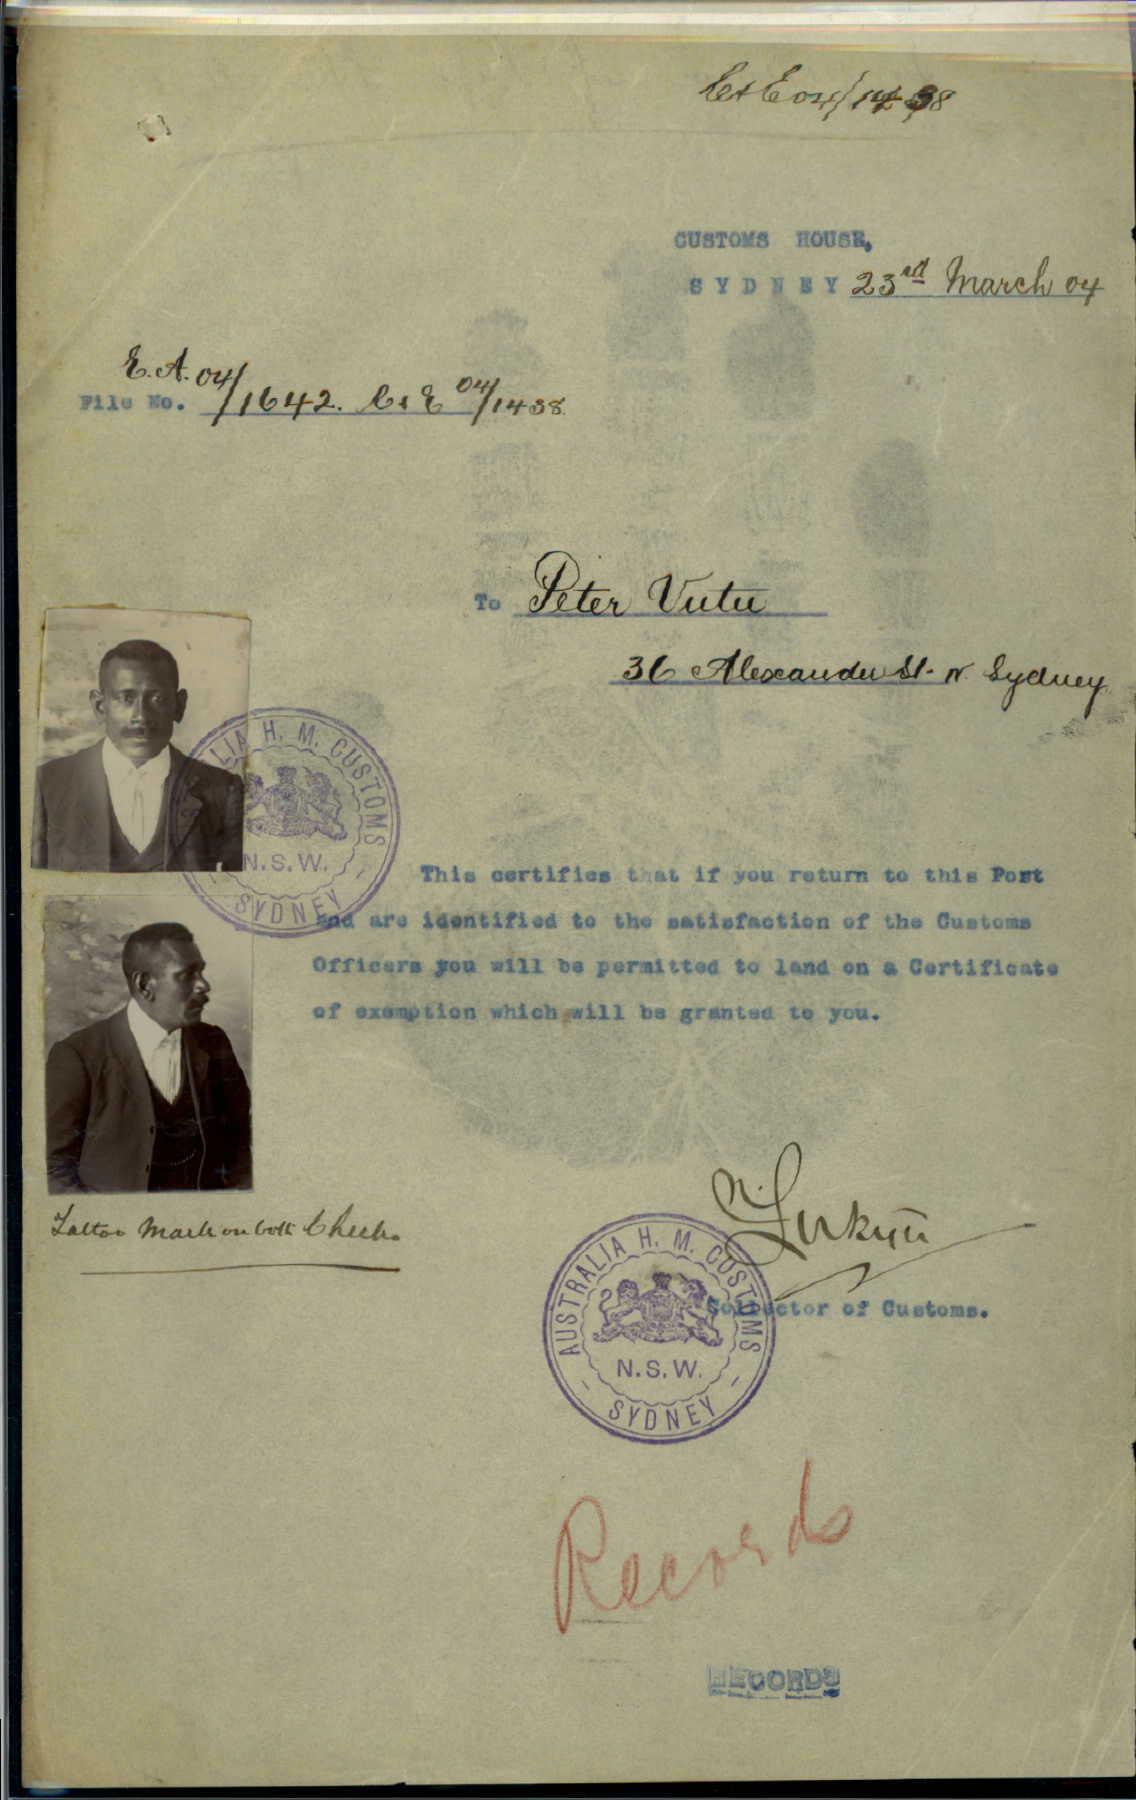 C&E 04/1438
CUSTOMS HOUSE,
SYDNEY 23rd March 04
E.A. 04
File No. /1642. C & E 04/1438
To Peter Vutu
36 Alexander St. N. Sydney
AUSTRALIA H. M. CUSTOMS
N.S.W.
SYDNEY
This certifies that if you return to this Port
and are identified to the satisfaction of the Customs
Officers you will be permitted to land on a Certificate
of exemption which will be granted to you.
Tattoo Mark on both Cheeks
Collector of Customs.
AUSTRALIA H. M. CUSTOMS
N.S.W.
SYDNEY
Records
RECORDS